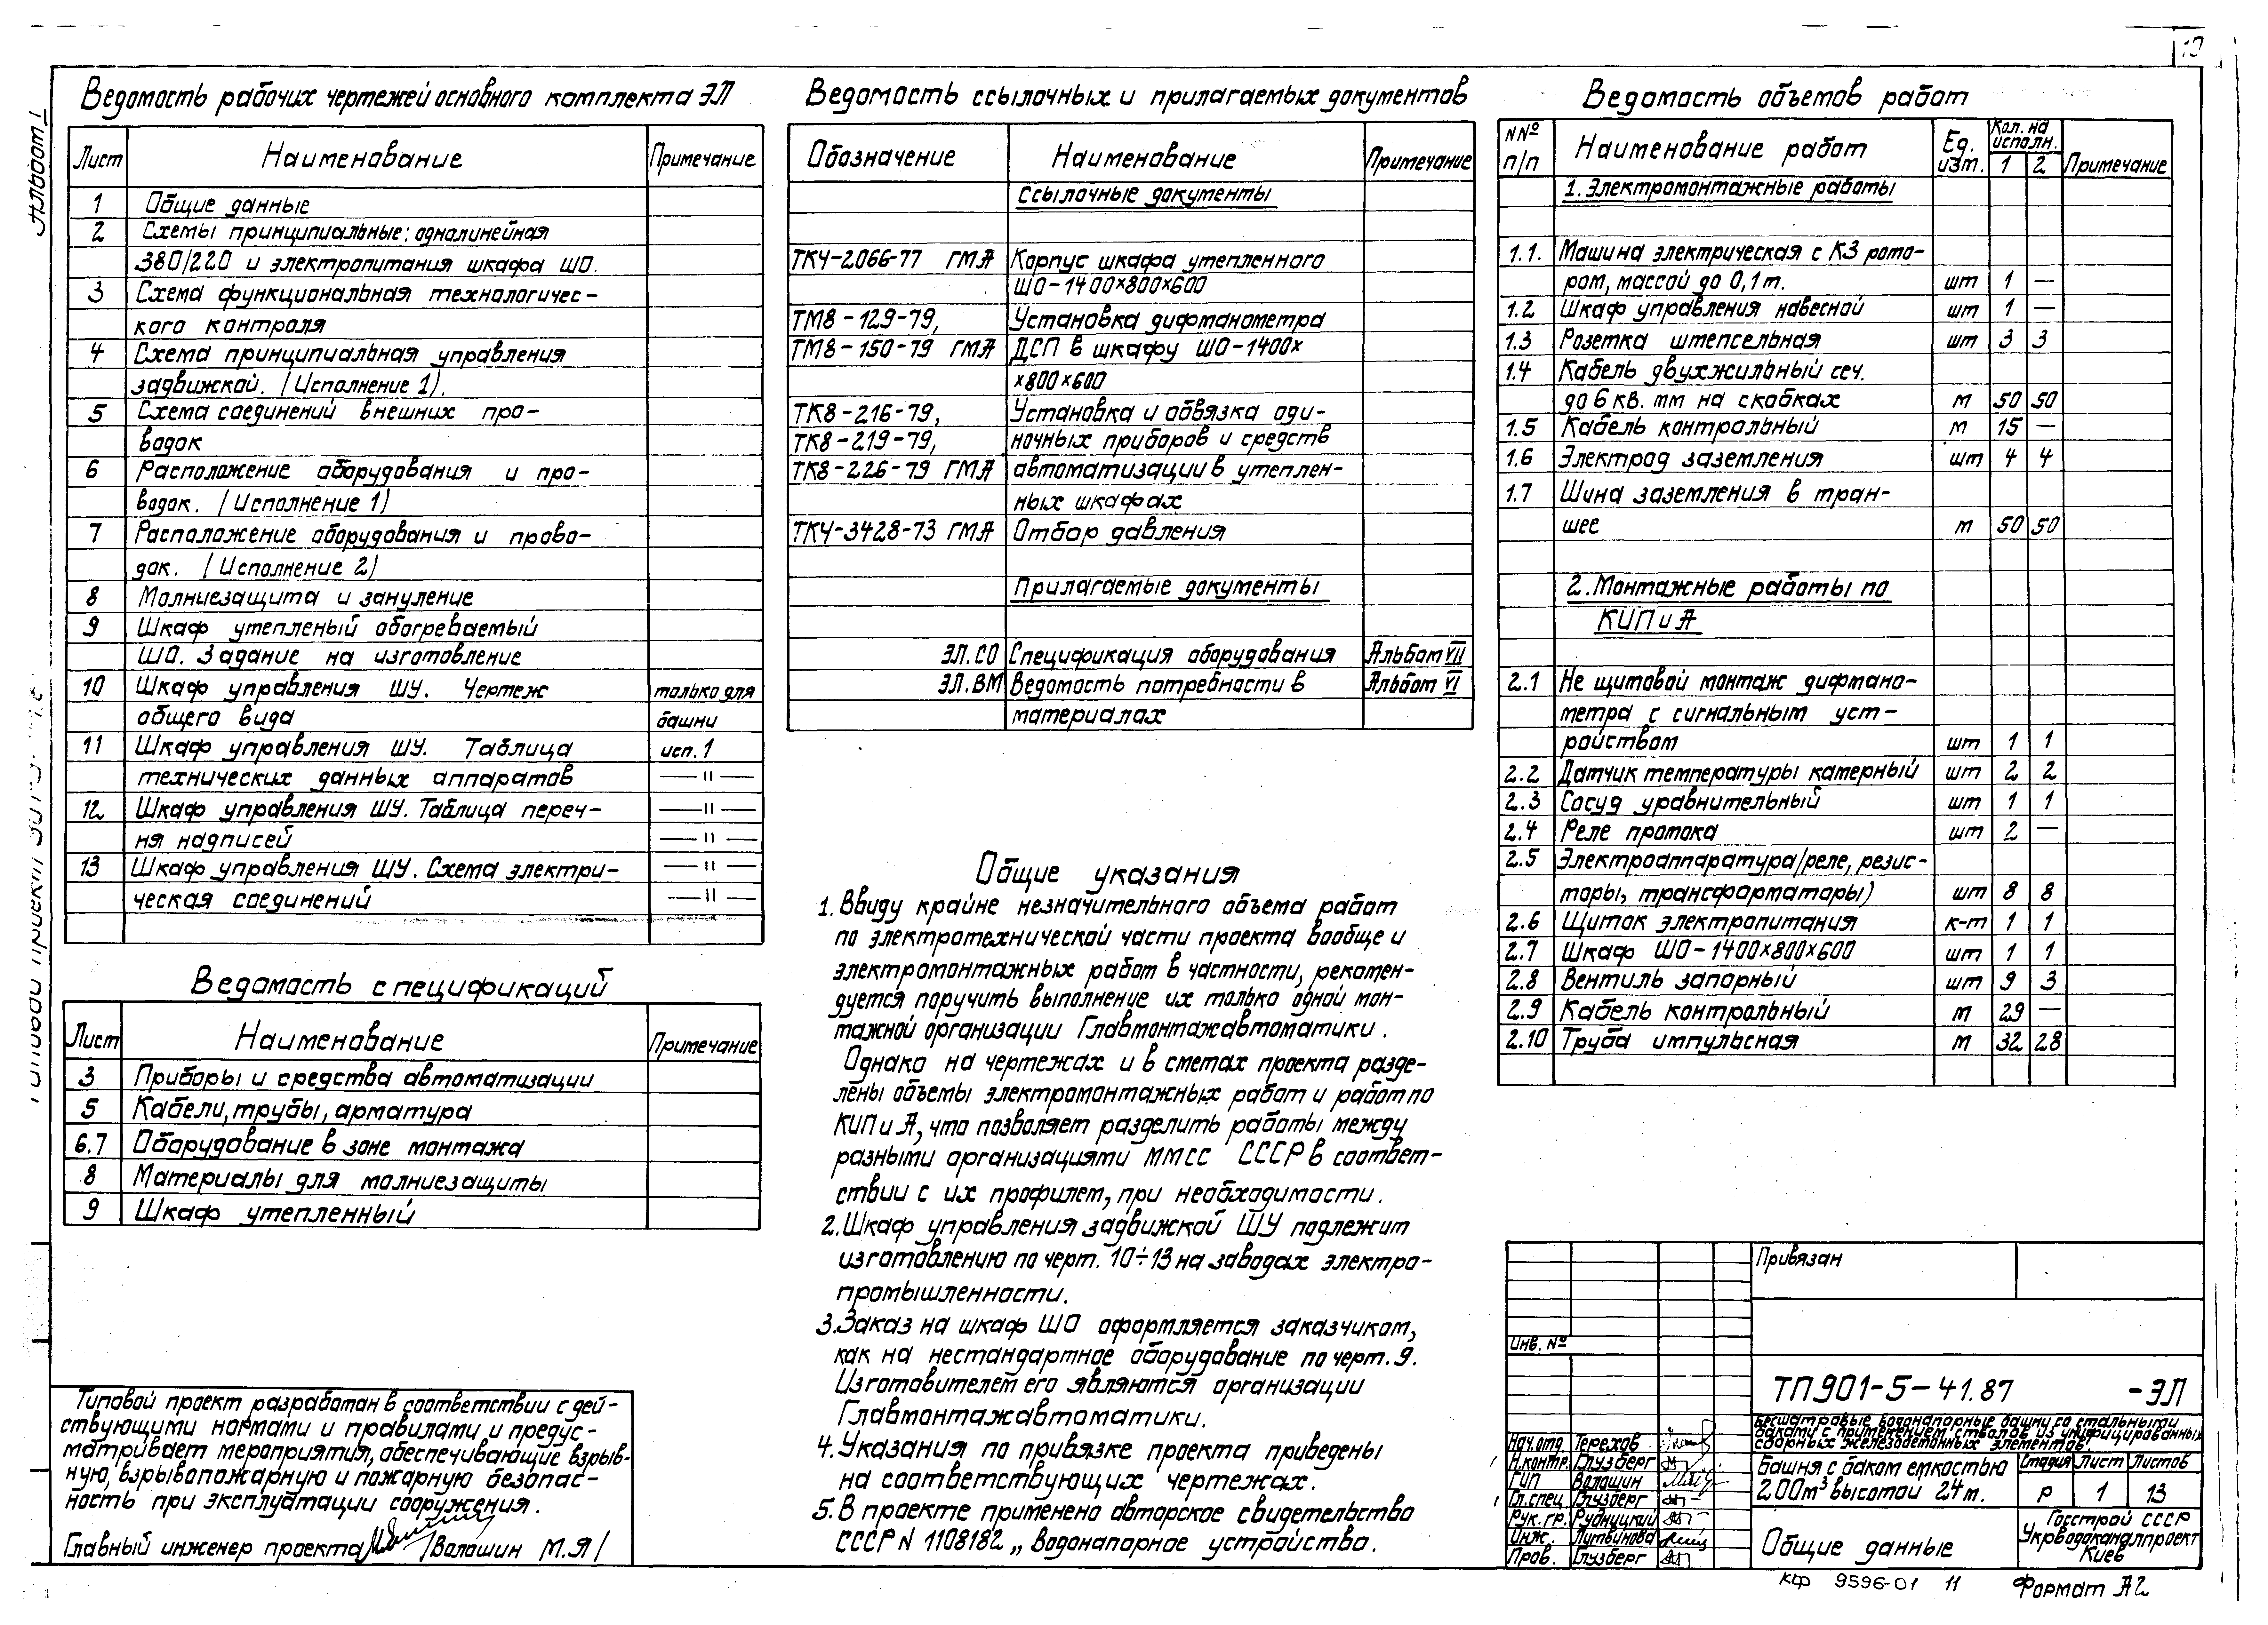 10
Альбом
Ведомость рабочих чертежей основного комплекта ЭЛ
Лист Наименование Примечание
1 Общие данные
2 Схемы принципиальные: однолинейная
380/220 и электропитания шкафа ШО.
3 Схема функциональная технологичес-
кого контроля
4 Схема принципиальная управления
задвижкой. /Исполнение 1/.
5 Схема соединений внешних про-
водок
6 Расположение оборудования и про-
водок. /Исполнение 1/
7 Расположение оборудования и прово-
док. /Исполнение 2/
8 Молниезащита и зануление
9 Шкаф утепленый обогреваемый
ШО. Задание на изготовление
10 Шкаф управления ШУ. Чертеж только для
общего вида башни
11 Шкаф управления ШУ. Таблица исп. 1
технических данных аппаратов — " —
12 Шкаф управления ШУ. Таблица переч- — " —
ня надписей — " —
13 Шкаф управления ШУ. Схема электри- — " —
ческая соединений — " —
Ведомость спецификаций
Лист Наименование Примечание
3 Приборы и средства автоматизации
5 Кабели, трубы, арматура
6.7 Оборудование в зоне монтажа
8 Материалы для молниезащиты
9 Шкаф утепленный
Типовой проект разработан в соответствии с дей-
ствующими нормами и правилами и предус-
матривает мероприятия, обеспечивающие взрыв-
ную, взрывопожарную и пожарную безопас-
ность при эксплуатации сооружения.
Главный инженер проекта /Волошин М.Я/
Ведомость ссылочных и прилагаемых документов
Обозначение Наименование Примечание
Ссылочные документы
ТК4-2066-77 ГМА Корпус шкафа утепленного
ШО-1400×800×600
ТМ8-129-79, Установка дифманометра
ТМ8-150-79 ГМА ДСП в шкафу ШО-1400×
×800×600
ТК8-216-79, Установка и обвязка оди-
ТК8-219-79, ночных приборов и средств
ТК8-226-79 ГМА автоматизации в утеплен-
ных шкафах
ТК4-3428-73 ГМА Отбор давления
Прилагаемые документы
ЭЛ.СО Спецификация оборудования Альбом VII
ЭЛ.ВМ Ведомость потребности в Альбом VI
материалах
Общие указания
1. Ввиду крайне незначительного объема работ
по электротехнической части проекта вообще и
электромонтажных работ в частности, рекомен-
дуется поручить выполнение их только одной мон-
тажной организации Главмонтажавтоматики.
Однако на чертежах и в сметах проекта разде-
лены объемы электромонтажных работ и работ по
КИП и А, что позволяет разделить работы между
разными организациями ММСС СССР в соответ-
ствии с их профилем, при необходимости.
2. Шкаф управления задвижкой ШУ подлежит
изготовлению по черт. 10÷13 на заводах электро-
промышленности.
3. Заказ на шкаф ШО оформляется заказчиком,
как на нестандартное оборудование по черт. 9.
Изготовителем его являются организации
Главмонтажавтоматики.
4. Указания по привязке проекта приведены
на соответствующих чертежах.
5. В проекте применено авторское свидетельство
СССР N 1108182 „Водонапорное устройство.
Ведомость объемов работ
NNº п/п Наименование работ Ед. изм. Кол. на исполн. 1 2 Примечание
1. Электромонтажные работы
1.1. Машина электрическая с КЗ рото-
ром, массой до 0,1 т. шт 1 —
1.2 Шкаф управления навесной шт 1 —
1.3 Розетка штепсельная шт 3 3
1.4 Кабель двухжильный сеч.
до 6 кв. мм на скобках м 50 50
1.5 Кабель контрольный м 15 —
1.6 Электрод заземления шт 4 4
1.7 Шина заземления в тран-
шее м 50 50
2. Монтажные работы по
КИП и А
2.1 Не щитовой монтаж дифмано-
метра с сигнальным уст-
ройством шт 1 1
2.2 Датчик температуры камерный шт 2 2
2.3 Сосуд уравнительный шт 1 1
2.4 Реле протока шт 2 —
2.5 Электроаппаратура/реле, резис-
торы, трансформаторы) шт 8 8
2.6 Щиток электропитания к-т 1 1
2.7 Шкаф ШО-1400×800×600 шт 1 1
2.8 Вентиль запорный шт 9 3
2.9 Кабель контрольный м 29 —
2.10 Труба импульсная м 32 28
Привязан
Инв. Nº
ТП901-5-41.87 -ЭЛ
Бесшатровые водонапорные башни со стальными
баками с применением стволов из унифицированных
сборных железобетонных элементов.
Нач.отд. Терехов
Н.контр. Глузберг
ГИП Волошин
Гл.спец. Глузберг
Рук.гр. Рудницкий
Инж. Литвинова
Пров. Глузберг
Башня с баком емкостью
200м³ высотой 24 м.
Стадия Лист Листов
Р 1 13
Общие данные
Госстрой СССР
Укрводоканалпроект
Киев
КФ 9596-01 11
Формат А2